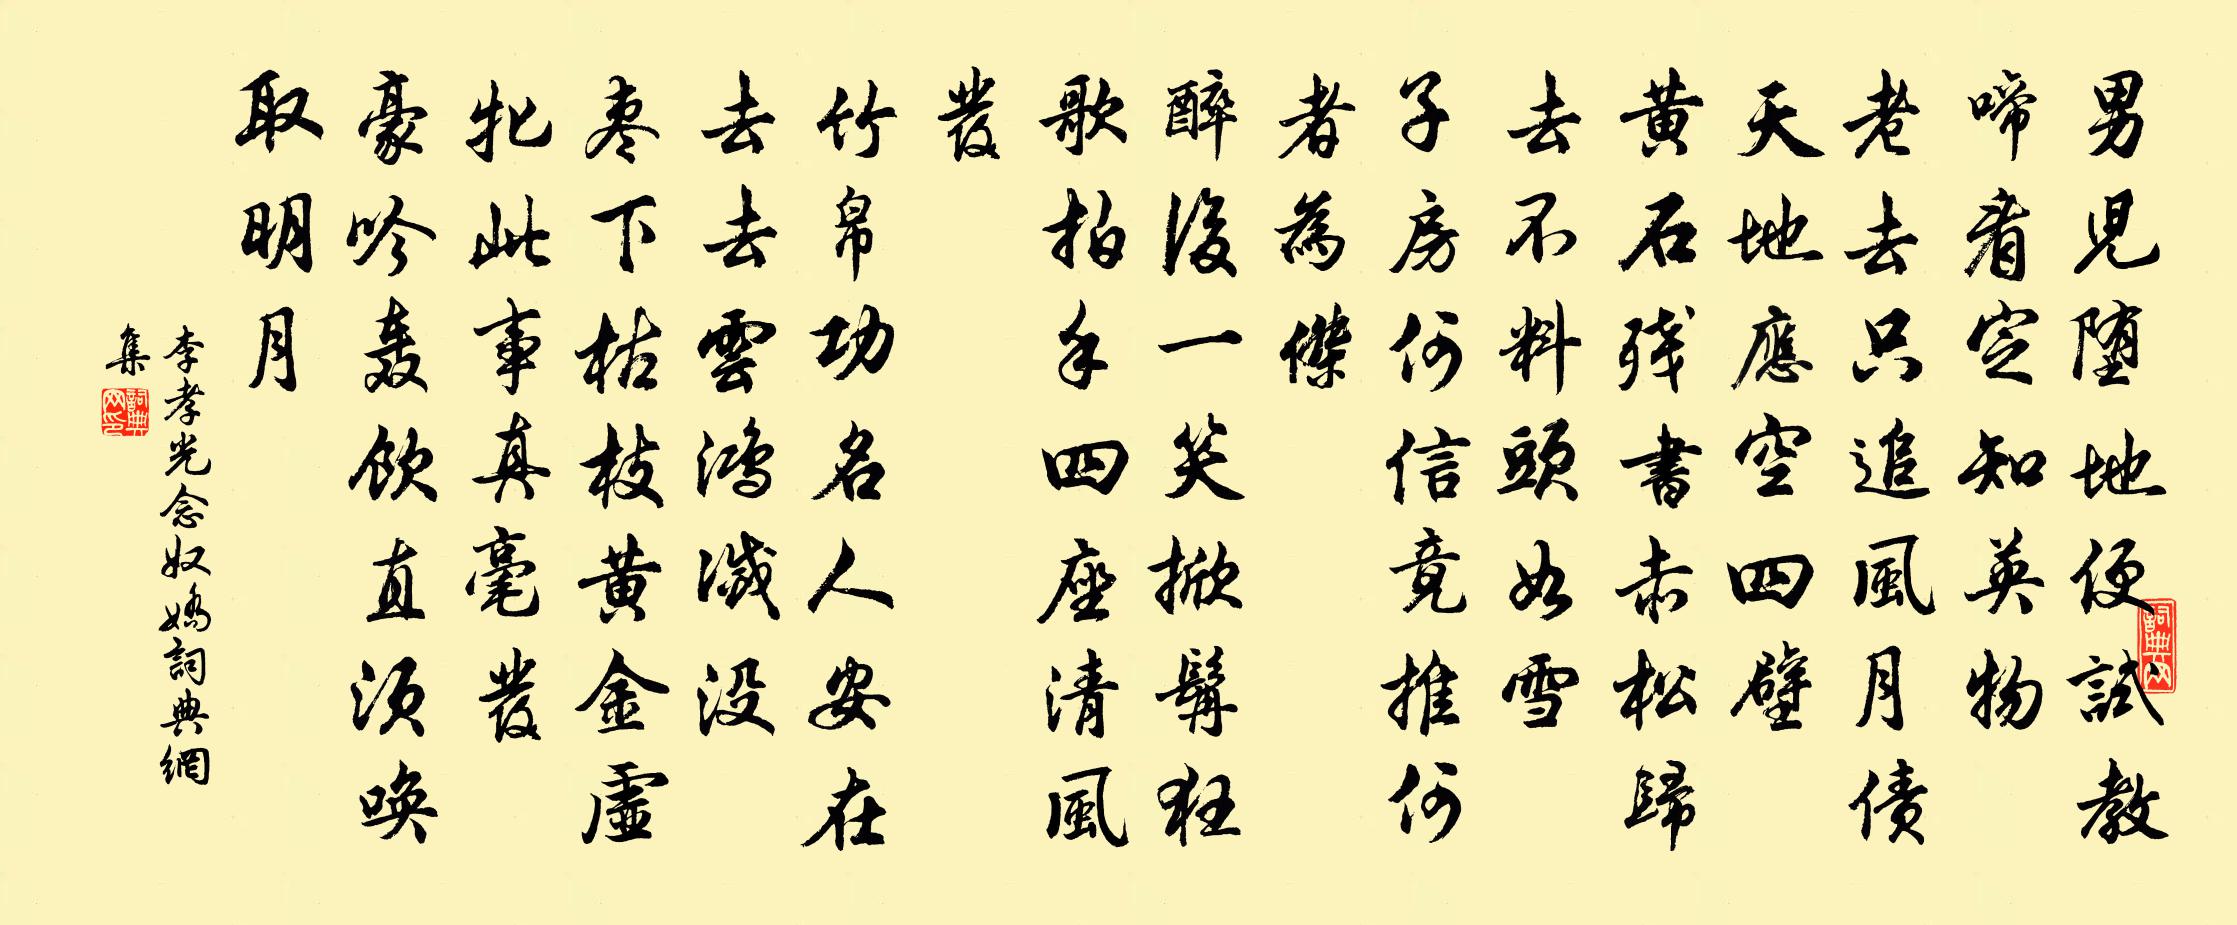 男児堕地便試教
啼看定知英物
老去只追風月债
天地應空四壁
黄石残書赤松歸
去不料頭如雪
子房何信竟推何
者為傑
醉後一笑掀髯狂
歌拍手四座清風
發
竹帛功名人安在
去去雲鸿滅没
枣下枯枝黄金虛
牝此事真毫發
豪吟轰飲直須唤
取明月
李孝光念奴嬌詞典網
集
詞典网
詞典网印